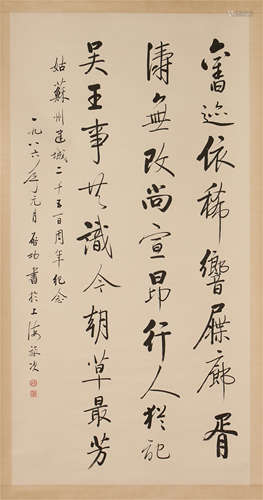 舊巡依稀響屧廊胥
濤無改尚宣昂行人猶記
吳王事共識今朝草最芳
姑蘇州建城二千五百周年紀念
一九八六年元月啟功書於上海旅次